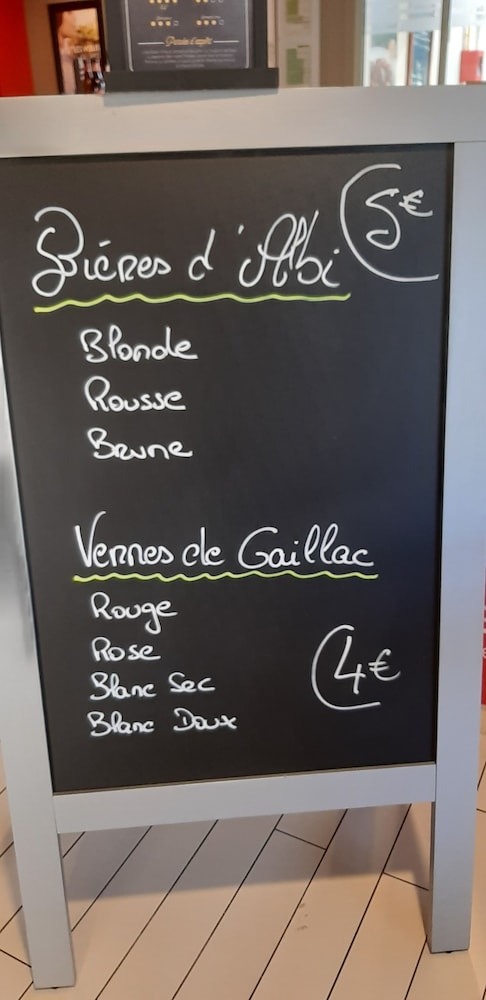 Bières d'Albi 5€
Blonde
Rousse
Brune
Verres de Gaillac
Rouge
Rose
Blanc Sec
Blanc Doux
4€